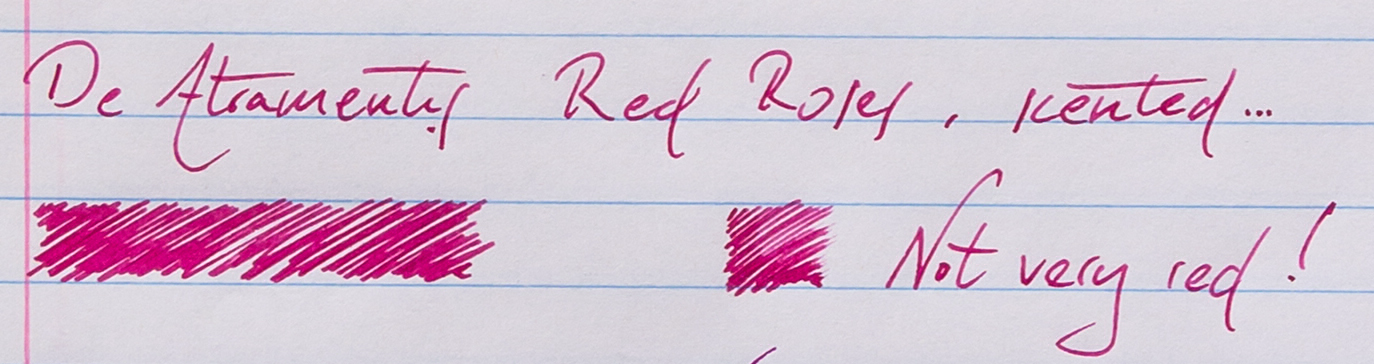 De Atramentis Red Roses, scented...
Not very red!